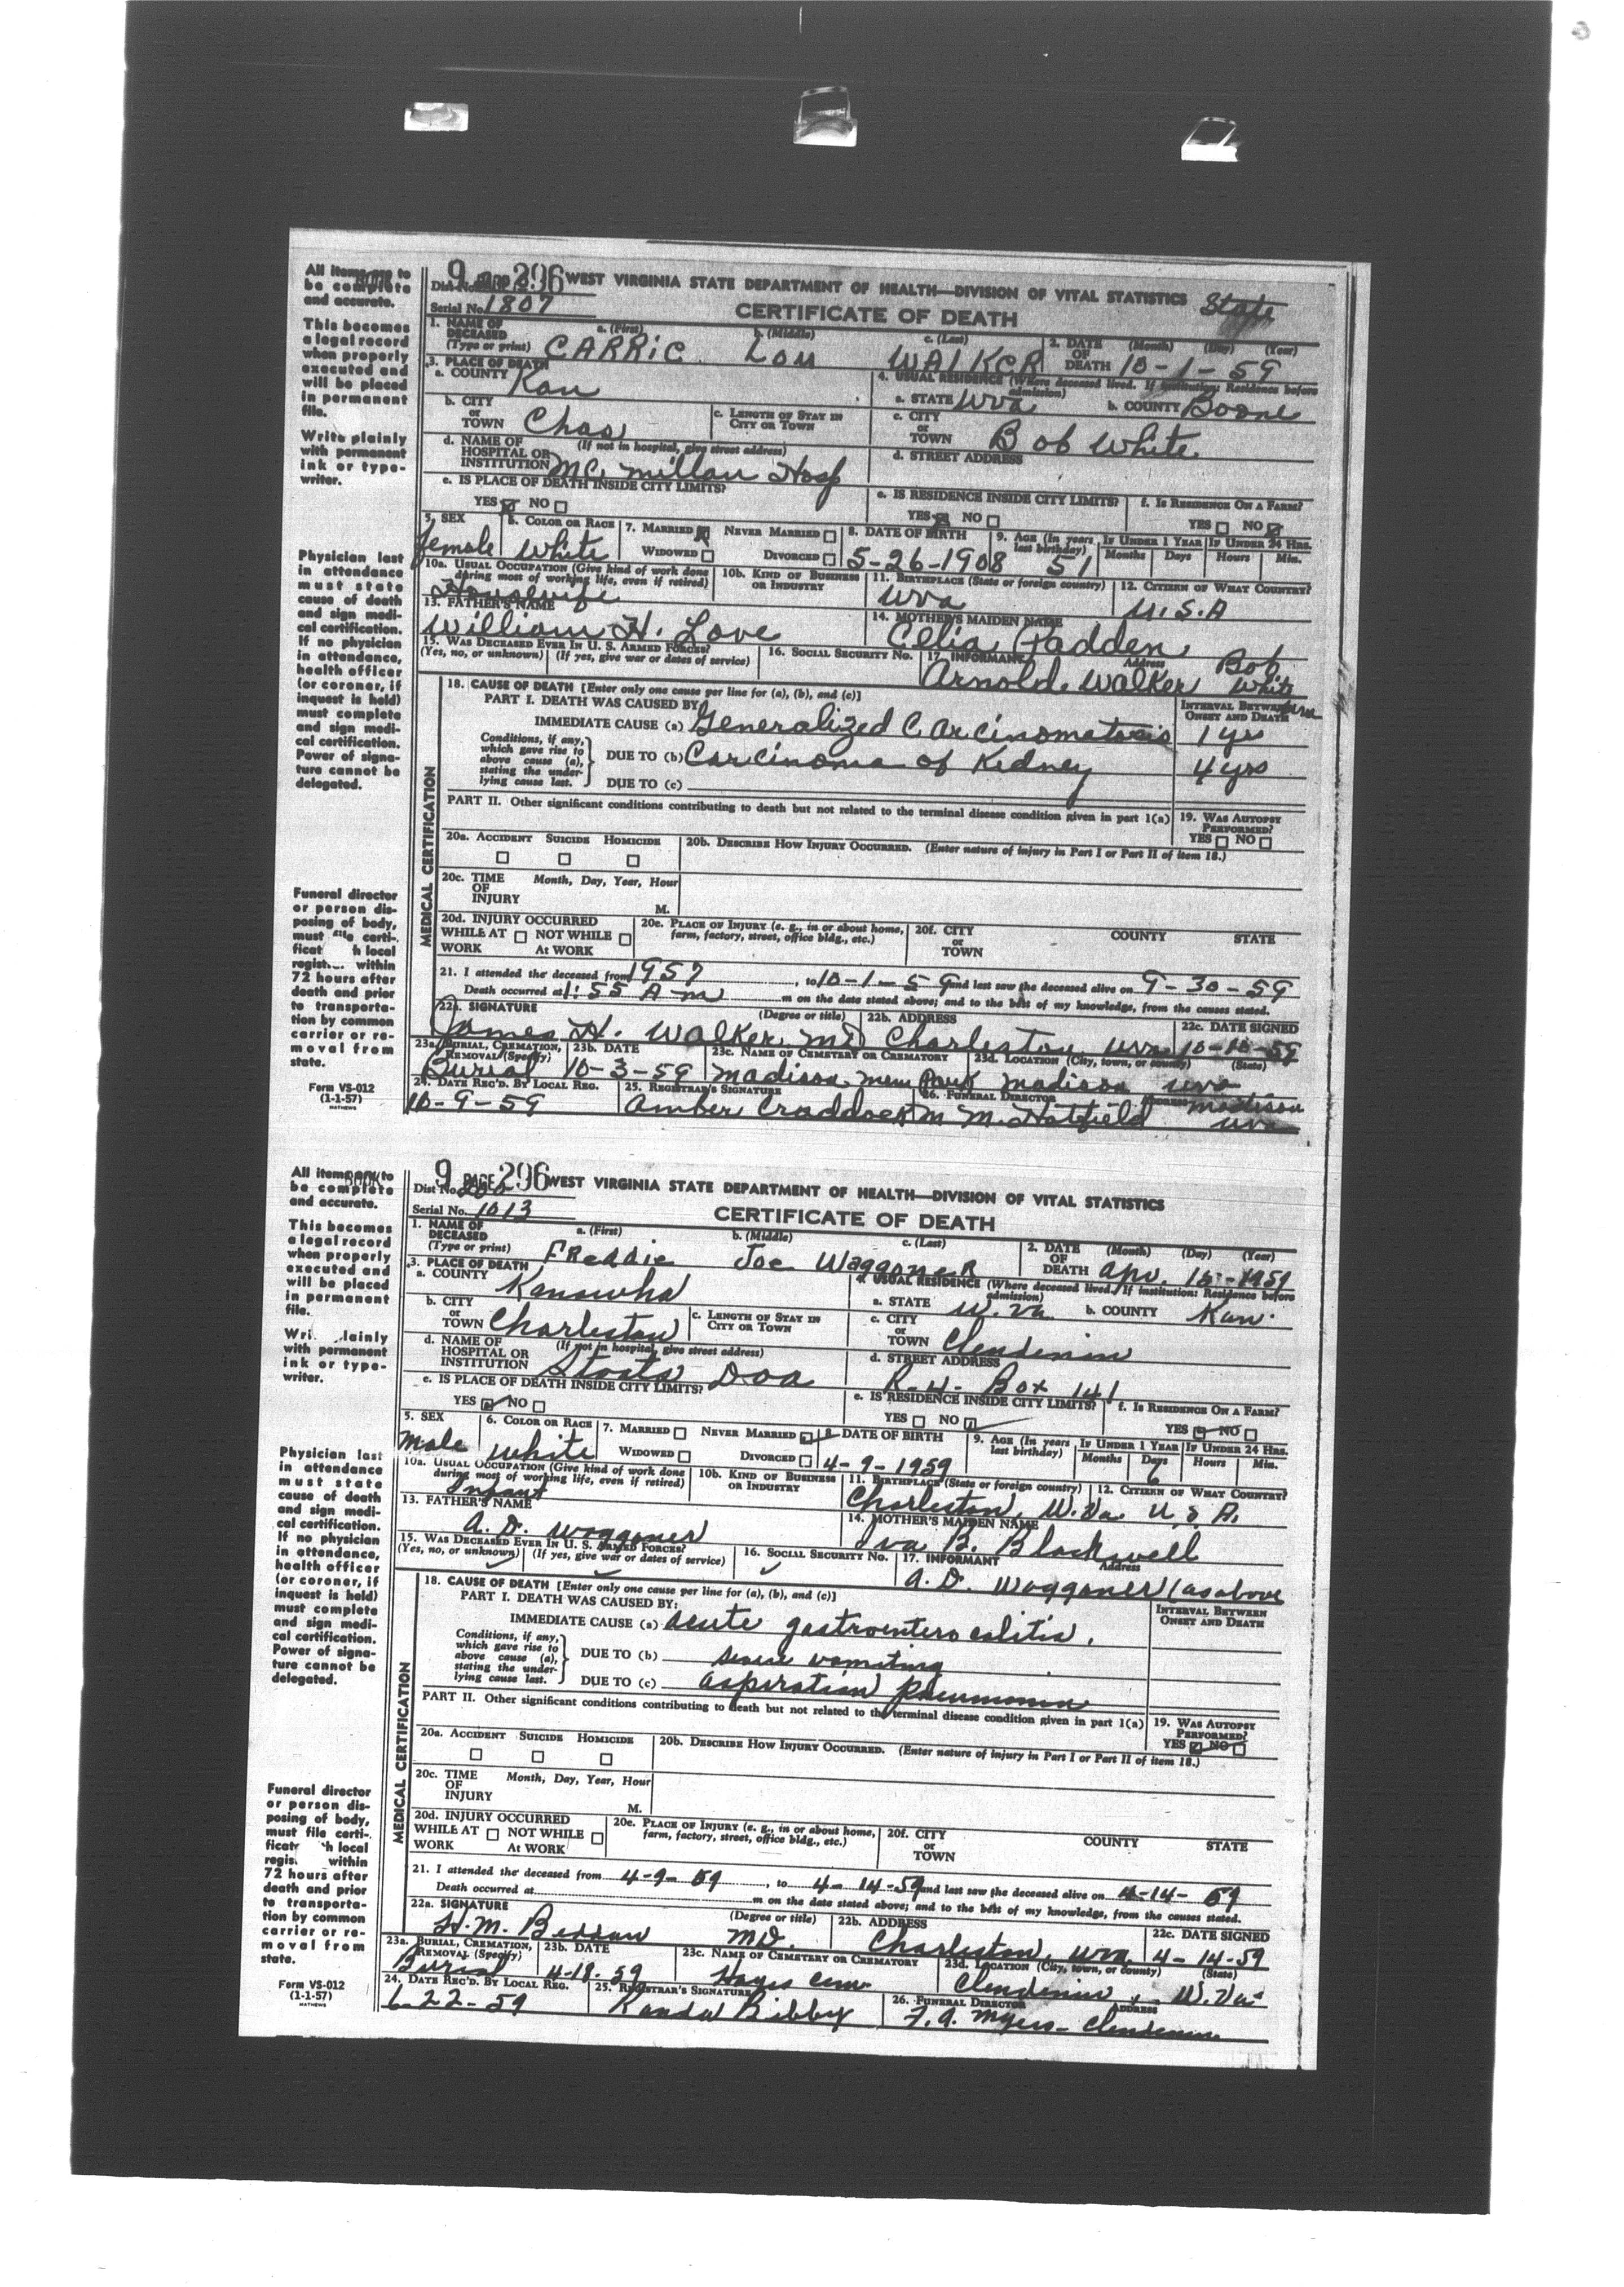 All items are to
be complete
and accurate.
This becomes
a legal record
when properly
executed and
will be placed
in permanent
file.
Write plainly
with permanent
ink or type-
writer.
Physician last
in attendance
must state
cause of death
and sign medi-
cal certification.
If no physician
in attendance,
health officer
(or coroner, if
inquest is held)
must complete
and sign medi-
cal certification.
Power of signa-
ture cannot be
delegated.
Funeral director
or person dis-
posing of body,
must file certi-
ficate h local
regist within
72 hours after
death and prior
to transporta-
tion by common
carrier or re-
moval from
state.
Form VS-012
(1-1-57)
MATHEWS
9 296 WEST VIRGINIA STATE DEPARTMENT OF HEALTH—DIVISION OF VITAL STATISTICS State
Dist No.
Serial No. 1807 CERTIFICATE OF DEATH
1. NAME OF DECEASED (Type or print) a. (First) b. (Middle) c. (Last) 2. DATE OF DEATH (Month) (Day) (Year)
CARRiC Lou WALKCR 10-1-59
3. PLACE OF DEATH a. COUNTY Kan 4. USUAL RESIDENCE (Where deceased lived. If institution: Residence before admission)
a. STATE Wva b. COUNTY Boone
b. CITY or TOWN Chas c. LENGTH OF STAY IN CITY OR TOWN c. CITY or TOWN Bob White
d. NAME OF HOSPITAL OR INSTITUTION (If not in hospital, give street address) Mc Millan Hosp d. STREET ADDRESS
e. IS PLACE OF DEATH INSIDE CITY LIMITS? YES NO e. IS RESIDENCE INSIDE CITY LIMITS? YES NO f. IS RESIDENCE ON A FARM? YES NO
5. SEX 6. COLOR OR RACE 7. MARRIED NEVER MARRIED WIDOWED DIVORCED 8. DATE OF BIRTH 9. AGE (In years last birthday) IF UNDER 1 YEAR Months Days IF UNDER 24 HRS. Hours Min.
female white 5-26-1908 51
10a. USUAL OCCUPATION (Give kind of work done during most of working life, even if retired) 10b. KIND OF BUSINESS OR INDUSTRY 11. BIRTHPLACE (State or foreign country) 12. CITIZEN OF WHAT COUNTRY?
Housewife Wva U.S.A
13. FATHER'S NAME 14. MOTHER'S MAIDEN NAME
William H. Love Celia Padden
15. WAS DECEASED EVER IN U. S. ARMED FORCES? (Yes, no, or unknown) (If yes, give war or dates of service) 16. SOCIAL SECURITY No. 17. INFORMANT Address
Arnold Walker Bob White
MEDICAL CERTIFICATION
18. CAUSE OF DEATH [Enter only one cause per line for (a), (b), and (c)]
PART I. DEATH WAS CAUSED BY: INTERVAL BETWEEN ONSET AND DEATH
IMMEDIATE CAUSE (a) Generalized Carcinomatosis 1 yr
Conditions, if any, which gave rise to above cause (a), stating the underlying cause last. DUE TO (b) Carcinoma of Kidney 4 yrs
DUE TO (c)
PART II. Other significant conditions contributing to death but not related to the terminal disease condition given in part 1(a) 19. WAS AUTOPSY PERFORMED? YES NO
20a. ACCIDENT SUICIDE HOMICIDE 20b. DESCRIBE HOW INJURY OCCURRED. (Enter nature of injury in Part I or Part II of item 18.)
20c. TIME OF INJURY Month, Day, Year, Hour M.
20d. INJURY OCCURRED WHILE AT WORK NOT WHILE AT WORK 20e. PLACE OF INJURY (e. g., in or about home, farm, factory, street, office bldg., etc.) 20f. CITY or TOWN COUNTY STATE
21. I attended the deceased from 1957, to 10-1-59 and last saw the deceased alive on 9-30-59
Death occurred at 1:55 A m m on the date stated above; and to the best of my knowledge, from the causes stated.
22a. SIGNATURE (Degree or title) 22b. ADDRESS 22c. DATE SIGNED
James H. Walker MD Charleston Wva 10-10-59
23a. BURIAL, CREMATION, REMOVAL (Specify) 23b. DATE 23c. NAME OF CEMETERY OR CREMATORY 23d. LOCATION (City, town, or county) (State)
Burial 10-3-59 Madison Mem Park Madison Wva
24. DATE REC'D. BY LOCAL REG. 25. REGISTRAR'S SIGNATURE 26. FUNERAL DIRECTOR ADDRESS
10-9-59 Amber Craddock M M. Hatfield Madison Wva
All items are to
be complete
and accurate.
This becomes
a legal record
when properly
executed and
will be placed
in permanent
file.
Wri lainly
with permanent
ink or type-
writer.
Physician last
in attendance
must state
cause of death
and sign medi-
cal certification.
If no physician
in attendance,
health officer
(or coroner, if
inquest is held)
must complete
and sign medi-
cal certification.
Power of signa-
ture cannot be
delegated.
Funeral director
or person dis-
posing of body,
must file certi-
ficate h local
regis within
72 hours after
death and prior
to transporta-
tion by common
carrier or re-
moval from
state.
Form VS-012
(1-1-57)
MATHEWS
BOOK 9 PAGE 296 WEST VIRGINIA STATE DEPARTMENT OF HEALTH—DIVISION OF VITAL STATISTICS
Dist No.
Serial No. 1013 CERTIFICATE OF DEATH
1. NAME OF DECEASED (Type or print) a. (First) b. (Middle) c. (Last) 2. DATE OF DEATH (Month) (Day) (Year)
FReddie Joe WaggoneR Apr. 15-1959
3. PLACE OF DEATH a. COUNTY Kanawha 4. USUAL RESIDENCE (Where deceased lived. If institution: Residence before admission)
a. STATE W. Va b. COUNTY Kan.
b. CITY or TOWN Charleston c. LENGTH OF STAY IN CITY OR TOWN c. CITY or TOWN Clendenin
d. NAME OF HOSPITAL OR INSTITUTION (If not in hospital, give street address) Staats Doa d. STREET ADDRESS R-4- Box 141
e. IS PLACE OF DEATH INSIDE CITY LIMITS? YES NO e. IS RESIDENCE INSIDE CITY LIMITS? YES NO f. IS RESIDENCE ON A FARM? YES NO
5. SEX 6. COLOR OR RACE 7. MARRIED NEVER MARRIED WIDOWED DIVORCED 8. DATE OF BIRTH 9. AGE (In years last birthday) IF UNDER 1 YEAR Months Days IF UNDER 24 HRS. Hours Min.
Male White 4-9-1959 6
10a. USUAL OCCUPATION (Give kind of work done during most of working life, even if retired) 10b. KIND OF BUSINESS OR INDUSTRY 11. BIRTHPLACE (State or foreign country) 12. CITIZEN OF WHAT COUNTRY?
Infant Charleston, W.Va. U.S.A.
13. FATHER'S NAME 14. MOTHER'S MAIDEN NAME
A. D. Waggoner Iva B. Blackwell
15. WAS DECEASED EVER IN U. S. ARMED FORCES? (Yes, no, or unknown) (If yes, give war or dates of service) 16. SOCIAL SECURITY No. 17. INFORMANT Address
A. D. Waggoner (as above
MEDICAL CERTIFICATION
18. CAUSE OF DEATH [Enter only one cause per line for (a), (b), and (c)]
PART I. DEATH WAS CAUSED BY: INTERVAL BETWEEN ONSET AND DEATH
IMMEDIATE CAUSE (a) acute gastroenterocolitis.
Conditions, if any, which gave rise to above cause (a), stating the underlying cause last. DUE TO (b) severe vomiting
DUE TO (c) aspiration pneumonia
PART II. Other significant conditions contributing to death but not related to the terminal disease condition given in part 1(a) 19. WAS AUTOPSY PERFORMED? YES NO
20a. ACCIDENT SUICIDE HOMICIDE 20b. DESCRIBE HOW INJURY OCCURRED. (Enter nature of injury in Part I or Part II of item 18.)
20c. TIME OF INJURY Month, Day, Year, Hour M.
20d. INJURY OCCURRED WHILE AT WORK NOT WHILE AT WORK 20e. PLACE OF INJURY (e. g., in or about home, farm, factory, street, office bldg., etc.) 20f. CITY or TOWN COUNTY STATE
21. I attended the deceased from 4-9-59, to 4-14-59 and last saw the deceased alive on 4-14-59
Death occurred at m on the date stated above; and to the best of my knowledge, from the causes stated.
22a. SIGNATURE (Degree or title) 22b. ADDRESS 22c. DATE SIGNED
H. M. MD. Charleston, Wva. 4-14-59
23a. BURIAL, CREMATION, REMOVAL (Specify) 23b. DATE 23c. NAME OF CEMETERY OR CREMATORY 23d. LOCATION (City, town, or county) (State)
Burial 4-18-59 Hayes Cem Clendenin, W.Va.
24. DATE REC'D. BY LOCAL REG. 25. REGISTRAR'S SIGNATURE 26. FUNERAL DIRECTOR ADDRESS
6-22-59 Randa Bibby F. A. Myers- Clendenin